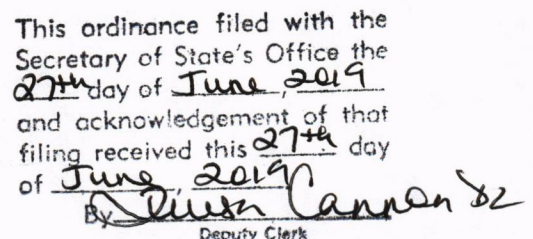 This ordinance filed with the
Secretary of State's Office the
27th day of June, 2019
and acknowledgement of that
filing received this 27th day
of June, 2019
By Cannon
Deputy Clerk